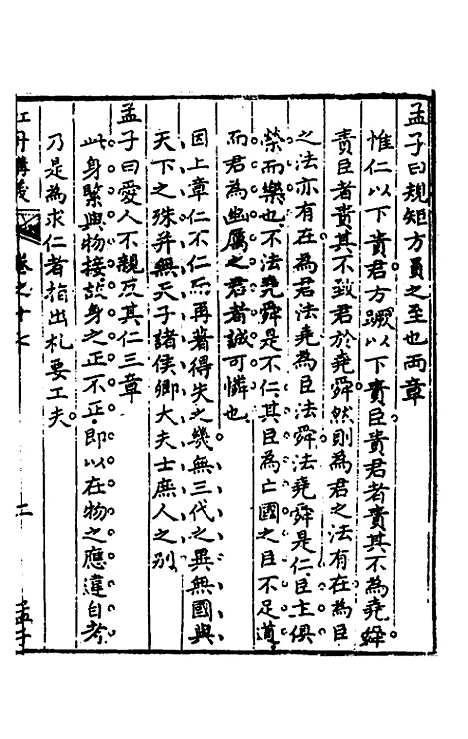 孟子曰規矩方員之至也兩章
惟仁以下責君方蹶以下責臣責君者責其不為堯舜
責臣者責其不致君於堯舜然則為君之法有在為臣
之法亦有在為君法堯為臣法舜法堯舜是仁臣主俱
榮而樂也不法堯舜是不仁其臣為亡國之臣不足道
而君為幽厲之君者誠可憐也
因上章仁不仁而再著得失之幾無三代之異無國與
天下之殊并無天子諸侯卿大夫士庶人之別
孟子曰愛人不親反其仁三章
此身緊與物接故身之正不正即以在物之應違自考
乃是為求仁者指出札要工夫
卷之十七
二
孟子